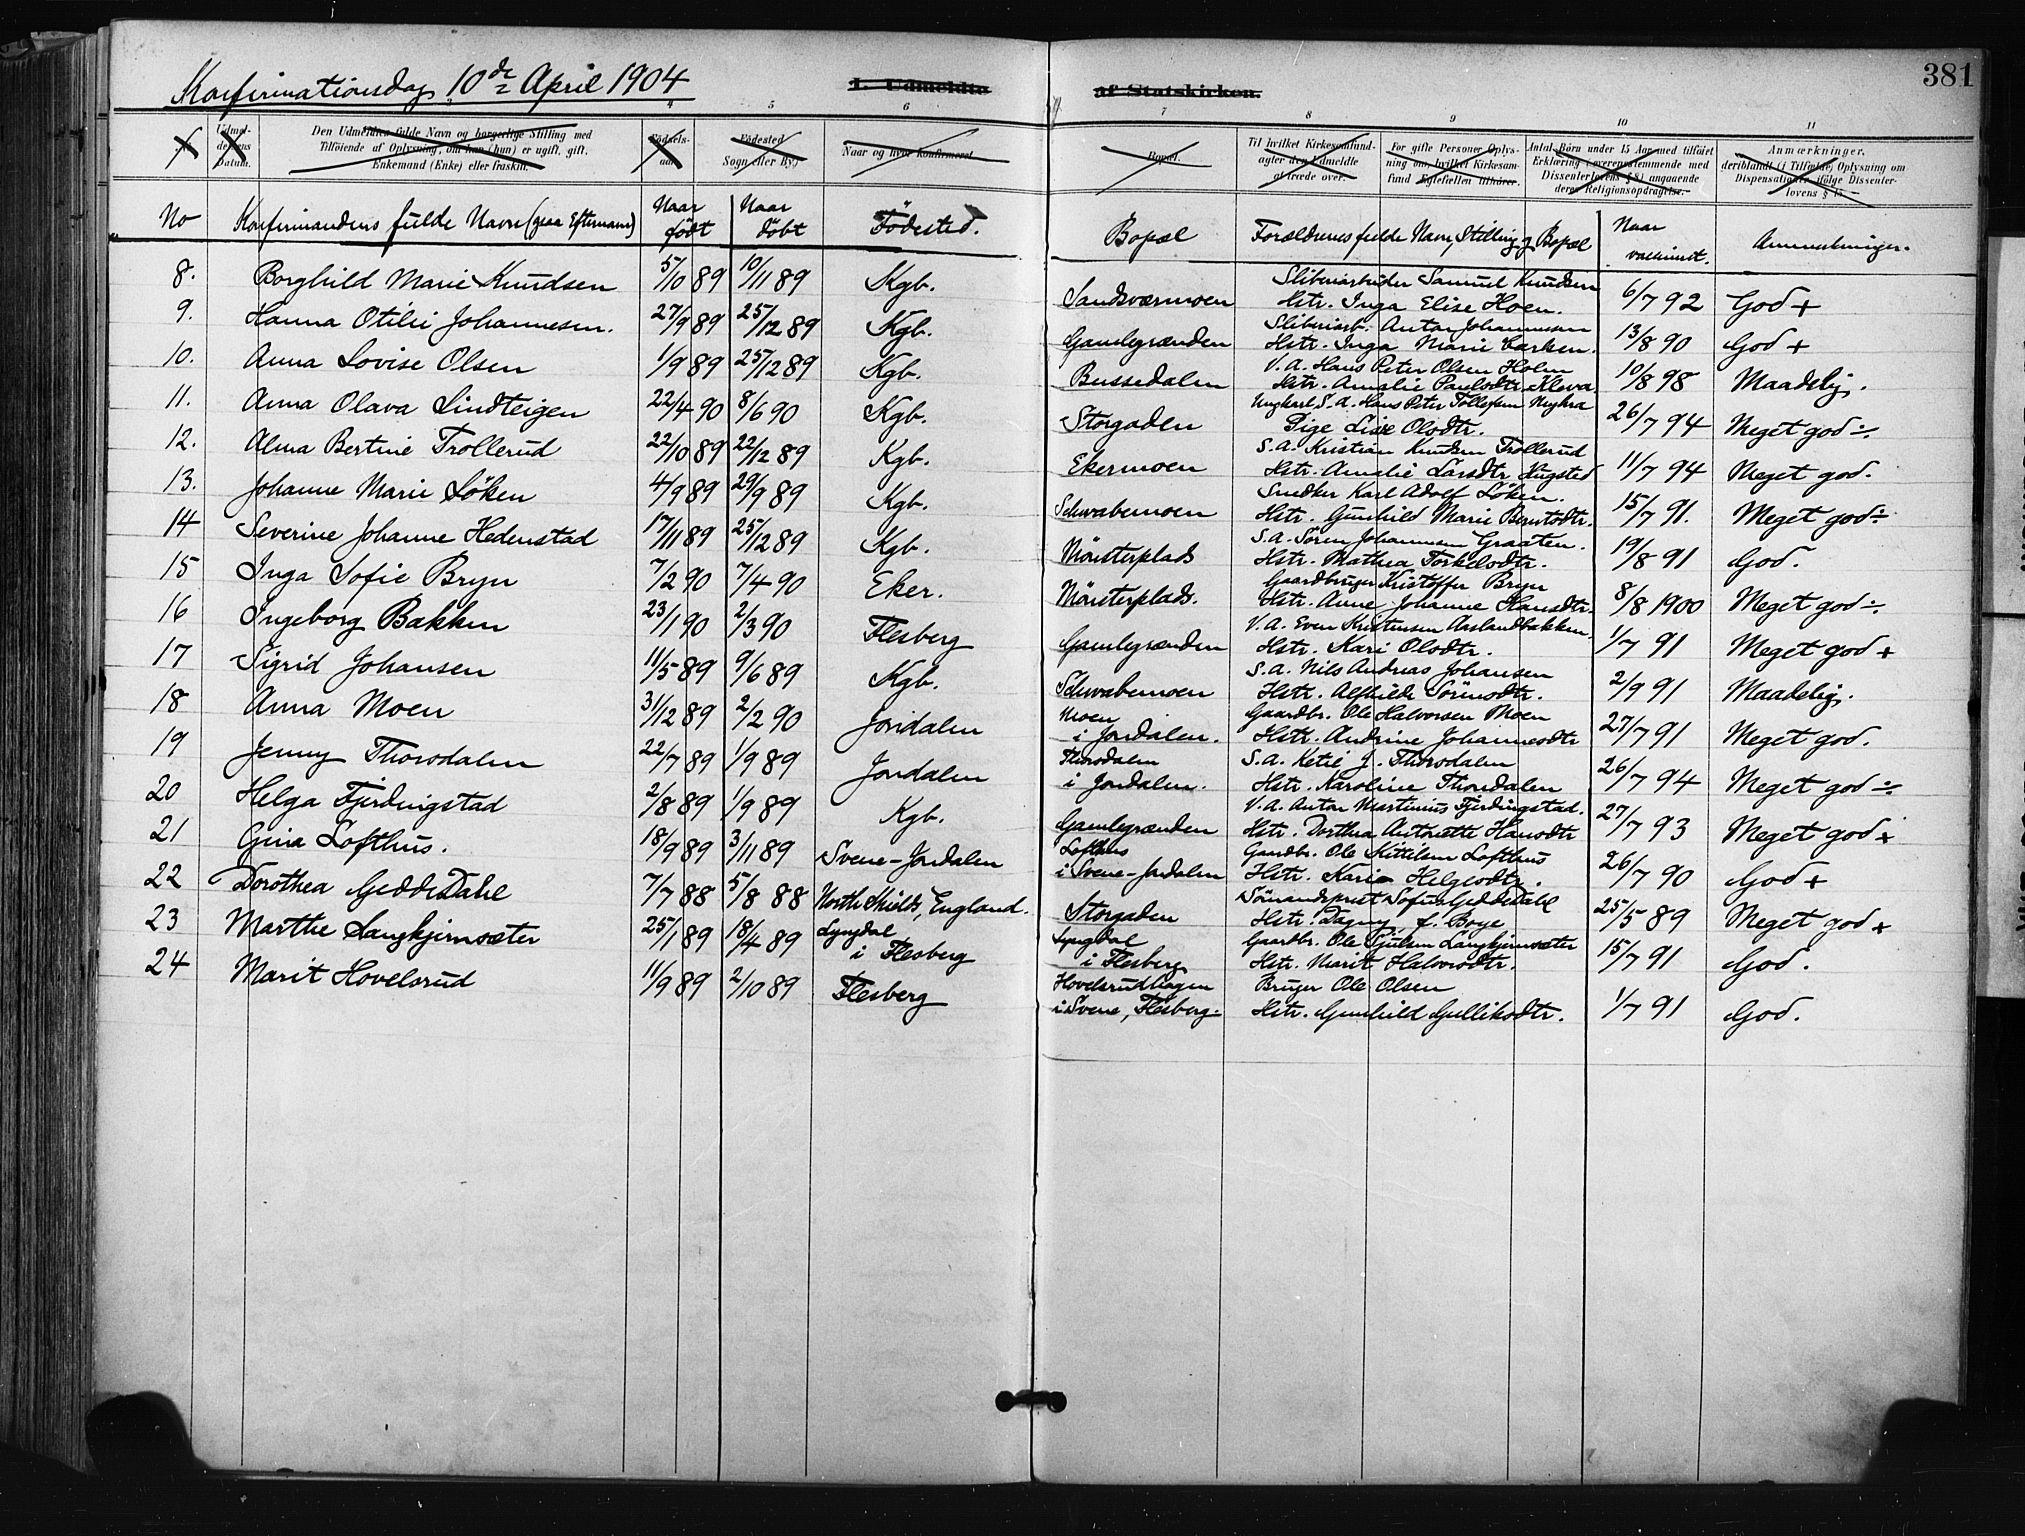 Konfirmationsdag 10de April 1904
I. Udmeldte af Statskirken.
381
3 4 5 6 7 8 9 10 11
Udmeldelsens Datum.
Den Udmeldtes fulde Navn og borgerlige Stilling med
Tilföiende af Oplysning, om han (hun) er ugift, gift,
Enkemand (Enke) eller fraskilt.
Födselsaar.
Födested
(Sogn eller By).
Naar og hvor konfirmeret.
Bopæl.
Til hvilket Kirkesamfund
agter den Udmeldte
at træde over.
For gifte Personer Oplysning
om, hvilket Kirkesamfund
Egtefællen tilhörer.
Antal Børn under 15 Aar med tilföiet
Erklæring (overensstemmende med
Dissenterlovens § 8) angaaende
deres Religionsopdragelse.
Anmærkninger,
deriblandt (i Tilfælde) Oplysning om
Dispensationer ifölge Dissenterlovens
§
No Konfirmandens fulde Navn (ogsaa Efternavn) Naar født Naar døbt Fødested. Bopæl Forældrenes fulde Navn, Stilling og Bopæl Naar vakcineret. Anmerkninger.
8. Borghild Marie Knudsen 5/10 89 10/11 89 Kgb. Sandsværmoen Sliberiarbeider Samuel Knudsen
Hstr. Inga Elise Hoen. 6/7 92 God +
9. Hanna Otilie Johannesen. 27/9 89 25/12 89 Kgb. Gamlegrænden Sliberiarb. Anton Johannesen
Hstr. Inga Marie Carlsen. 13/8 90 God +
10. Anna Lovise Olsen 1/9 89 25/12 89 Kgb. Bussedalen V. A. Hans Peter Olsen Holm
Hstr. Amalie Paulsdtr. Kleva 10/8 98 Maadelig.
11. Anna Olava Lindteigen 22/4 90 8/6 90 Kgb. Storgaden Ungkarl S. A. Hans Peter Tollefsen
Pige Lise Olsdtr. 26/7 94 Meget god ÷
12. Alma Bertine Trollerud 22/10 89 22/12 89 Kgb. Ekermoen S. A. Kristian Knudsen Trollerud
Hstr. Amalie Larsdtr. Hugsted 11/7 94 Meget god.
13. Johanne Marie Löken 4/9 89 29/9 89 Kgb. Schwabemoen Snedker Karl Adolf Löken.
Hstr. Gunhild Marie Berntsdtr. 15/7 91. Meget god ÷
14 Severine Johanne Hedenstad 17/11 89 25/12 89 Kgb. Mönsterplads S. A. Sören Johannesen Graaten.
Hstr. Mathea Torkelsdtr. 19/8 91 God.
15 Inga Sofie Bryn 7/2 90 7/4 90 Eker. Mönsterplads. Gaardbruger Kristoffer Bryn
Hstr. Anne Johanne Hansdtr. 8/8 1900 Meget god ÷
16 Ingeborg Bakken 23/1 90 2/3 90 Flesberg Gamlegrænden V. A. Even Kristensen Aaslandbakken.
Hstr. Kari Olsdtr. 1/7 91 Meget god +
17 Sigrid Johansen 11/5 89 9/6 89 Kgb. Schwabemoen S. A. Nils Andreas Johansen
Hstr. Alfhilde Sörensdtr. 2/9 91 Maadelig.
18 Anna Moen 31/12 89 2/2 90 Jondalen Moen
i Jondalen. Gaardbr. Ole Halvorsen Moen
Hstr. Andrine Johannesdtr 27/7 91 Meget god.
19 Jenny Thorsdalen 22/7 89 1/9 89 Jondalen Thorsdalen
i Jondalen. S. A. Ketil J. Thorsdalen
Hstr. Karoline Thorsdalen 26/7 94 Meget god ÷
20 Helga Fjerdingstad 2/8 89 1/9 89 Kgb. Gamlegrænden V. A. Anton Martinius Fjerdingstad.
Hstr. Dorthea Antonette Hansdtr 27/7 93 Meget god +
21 Gina Lofthus. 18/9 89 3/11 89 Svene-Jondalen Lofthus
i Svene-Jondalen Gaardbr. Ole Kittilsen Lofthus
Hstr. Kari Helgesdtr. 26/7 90 God +
22 Dorothea Gedde Dahl 7/7 88 5/8 88 North Shields, England. Storgaden Sömandsprest Sofus Gedde Dahl
Hstr. Dagny f. Boye 25/5 89 Meget god +
23 Marthe Langkjernsæter 25/1 89 18/4 89 Lyngdal
i Flesberg Lyngdal
i Flesberg Gaardbr. Ole Gjulsen Langkjernsæter
Hstr. Marit Halvorsdtr. 15/7 91 God.
24 Marit Hovelsrud 11/9 89 2/10 89 Flesberg Hovelsrudhagen
i Svene, Flesberg. Bruger Ole Olsen
Hstr. Gunhild Gulliksdtr. 1/7 91 God.